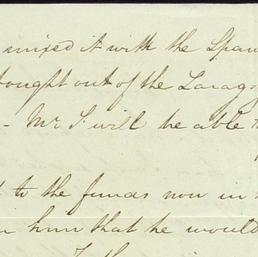 mixed it with the Span
bought out of the Zarago
- Mr S. will be able t
d to the funds now in
him that he would